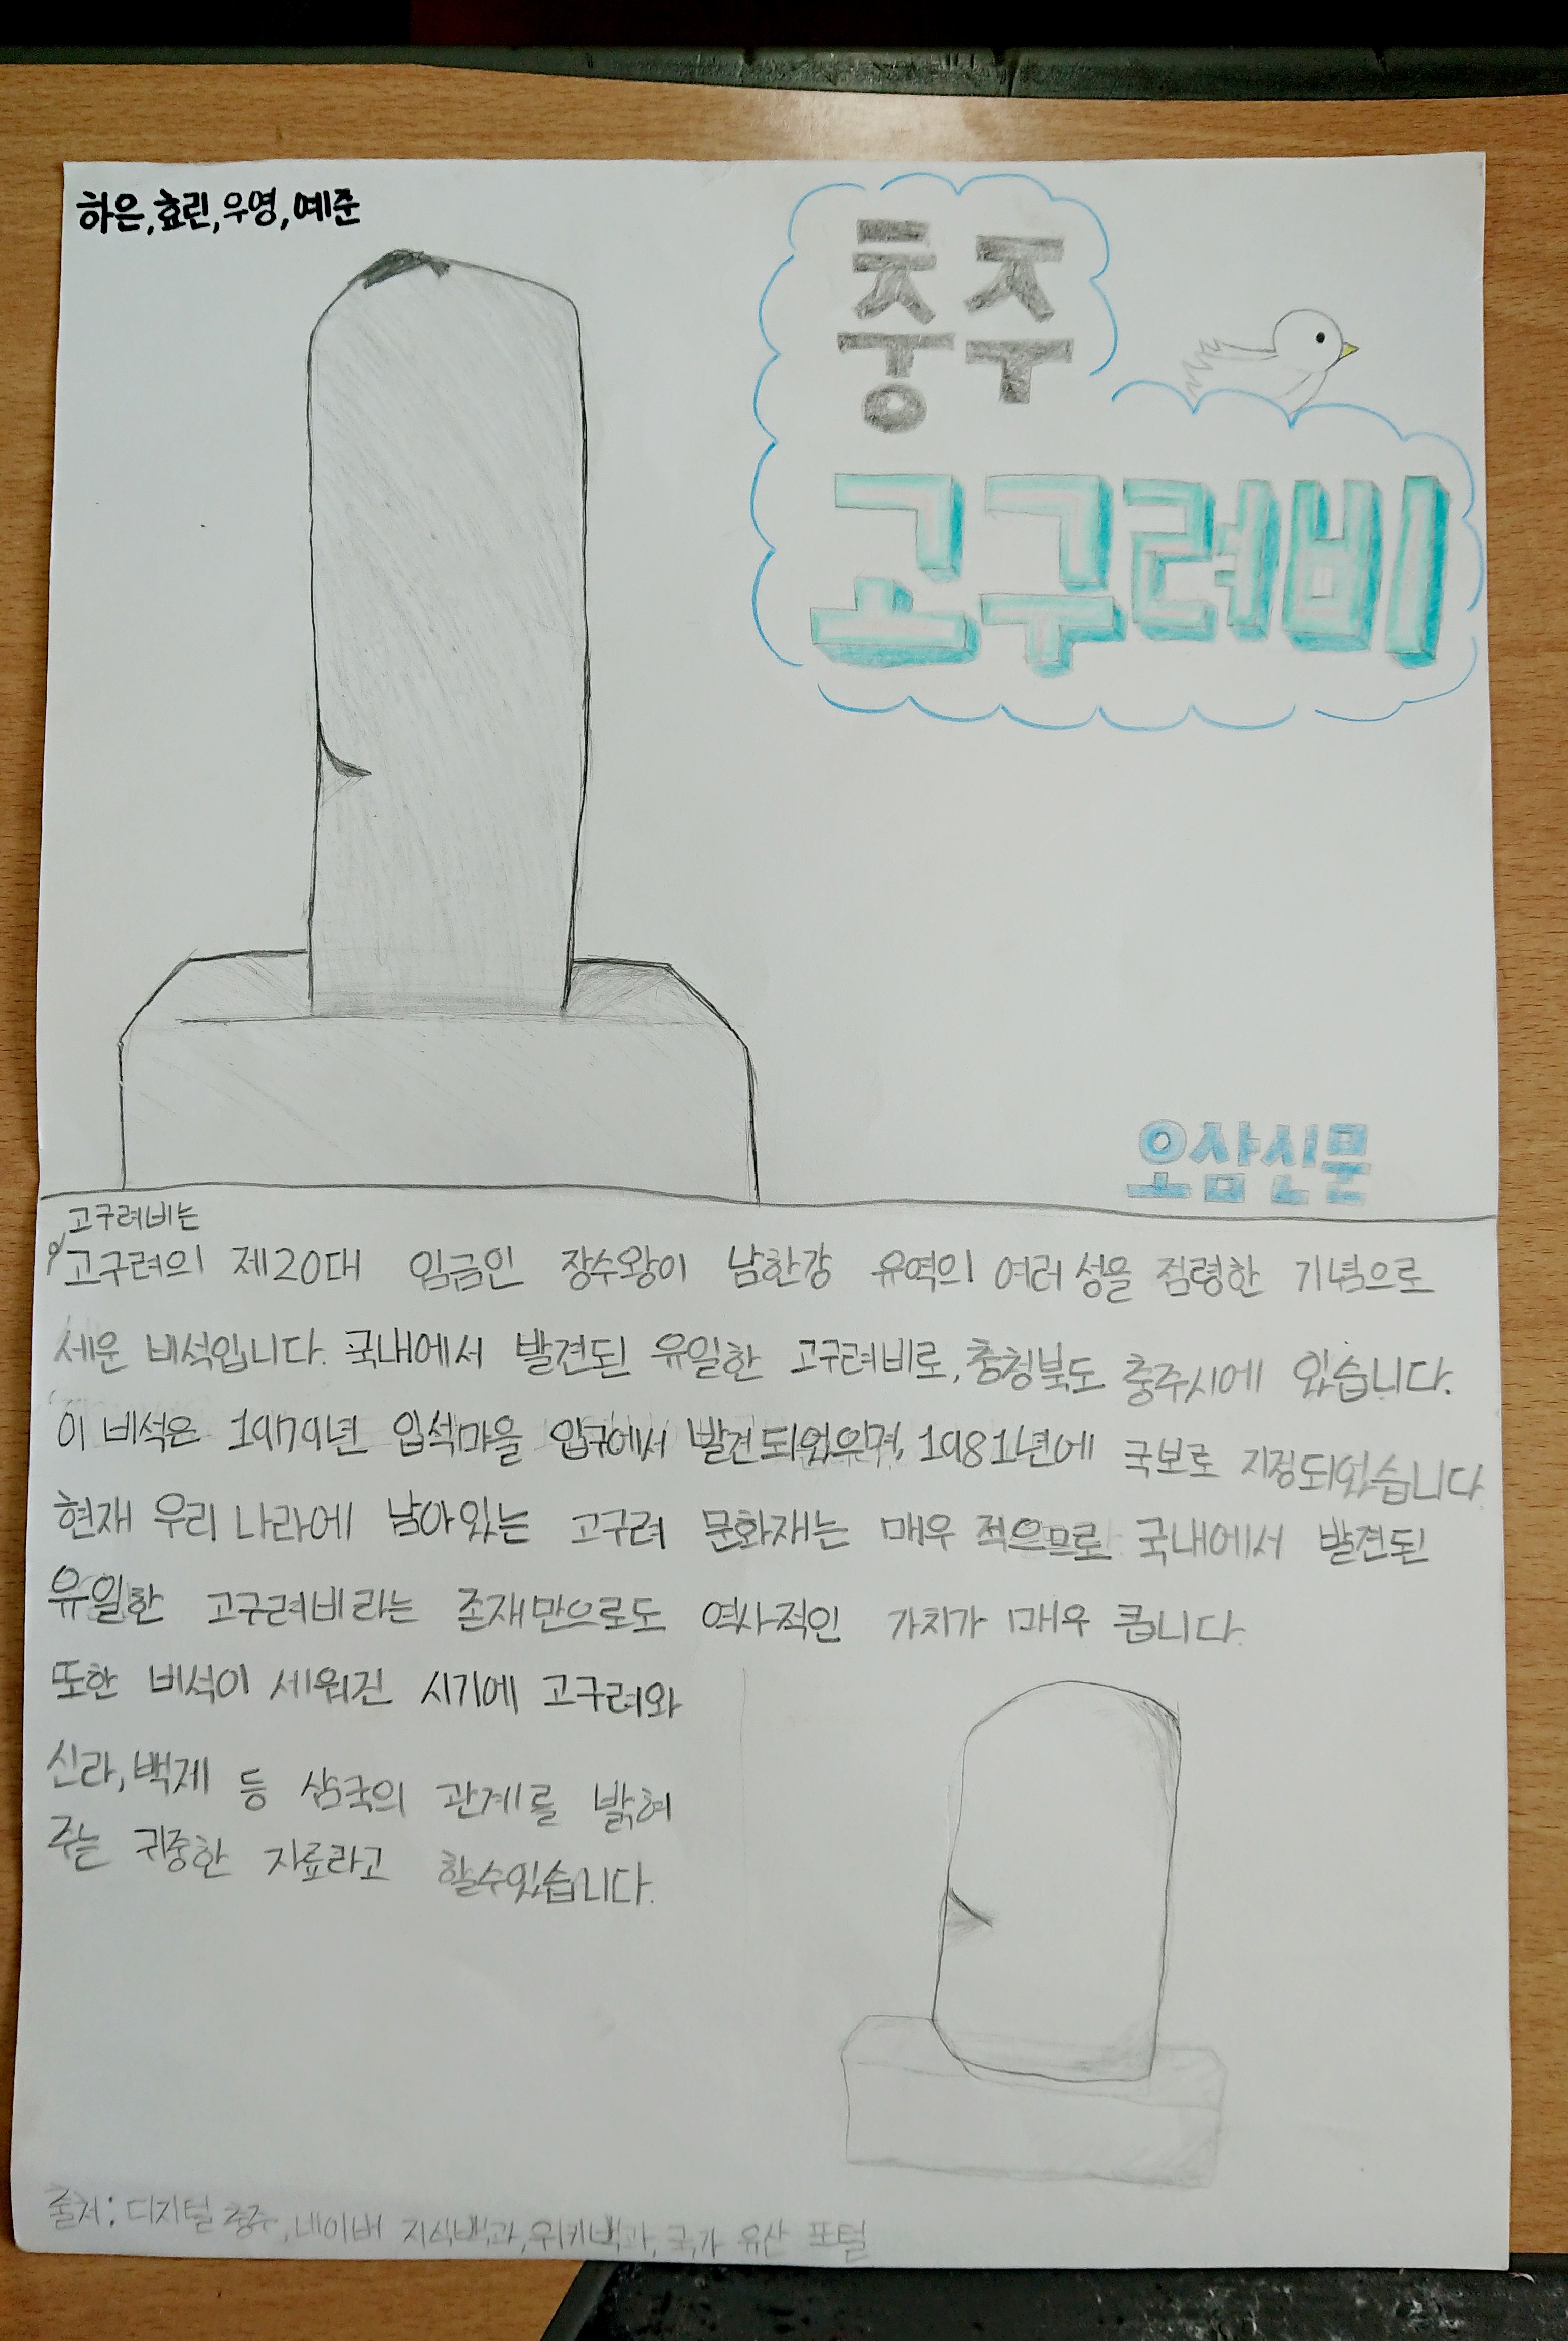 하은, 효린, 우영, 예준
충주
고구려비
오삼신문
고구려비는
고구려의 제20대 임금인 장수왕이 남한강 유역의 여러 성을 점령한 기념으로
세운 비석입니다. 국내에서 발견된 유일한 고구려비로, 충청북도 충주시에 있습니다.
이 비석은 1979년 입석마을 입구에서 발견되었으며, 1981년에 국보로 지정되었습니다
현재 우리 나라에 남아있는 고구려 문화재는 매우 적으므로 국내에서 발견된
유일한 고구려비라는 존재만으로도 역사적인 가치가 매우 큽니다.
또한 비석이 세워진 시기에 고구려와
신라, 백제 등 삼국의 관계를 밝혀
주는 귀중한 자료라고 할수있습니다.
출처: 디지털 충주, 네이버 지식백과, 위키백과, 국가 유산 포털